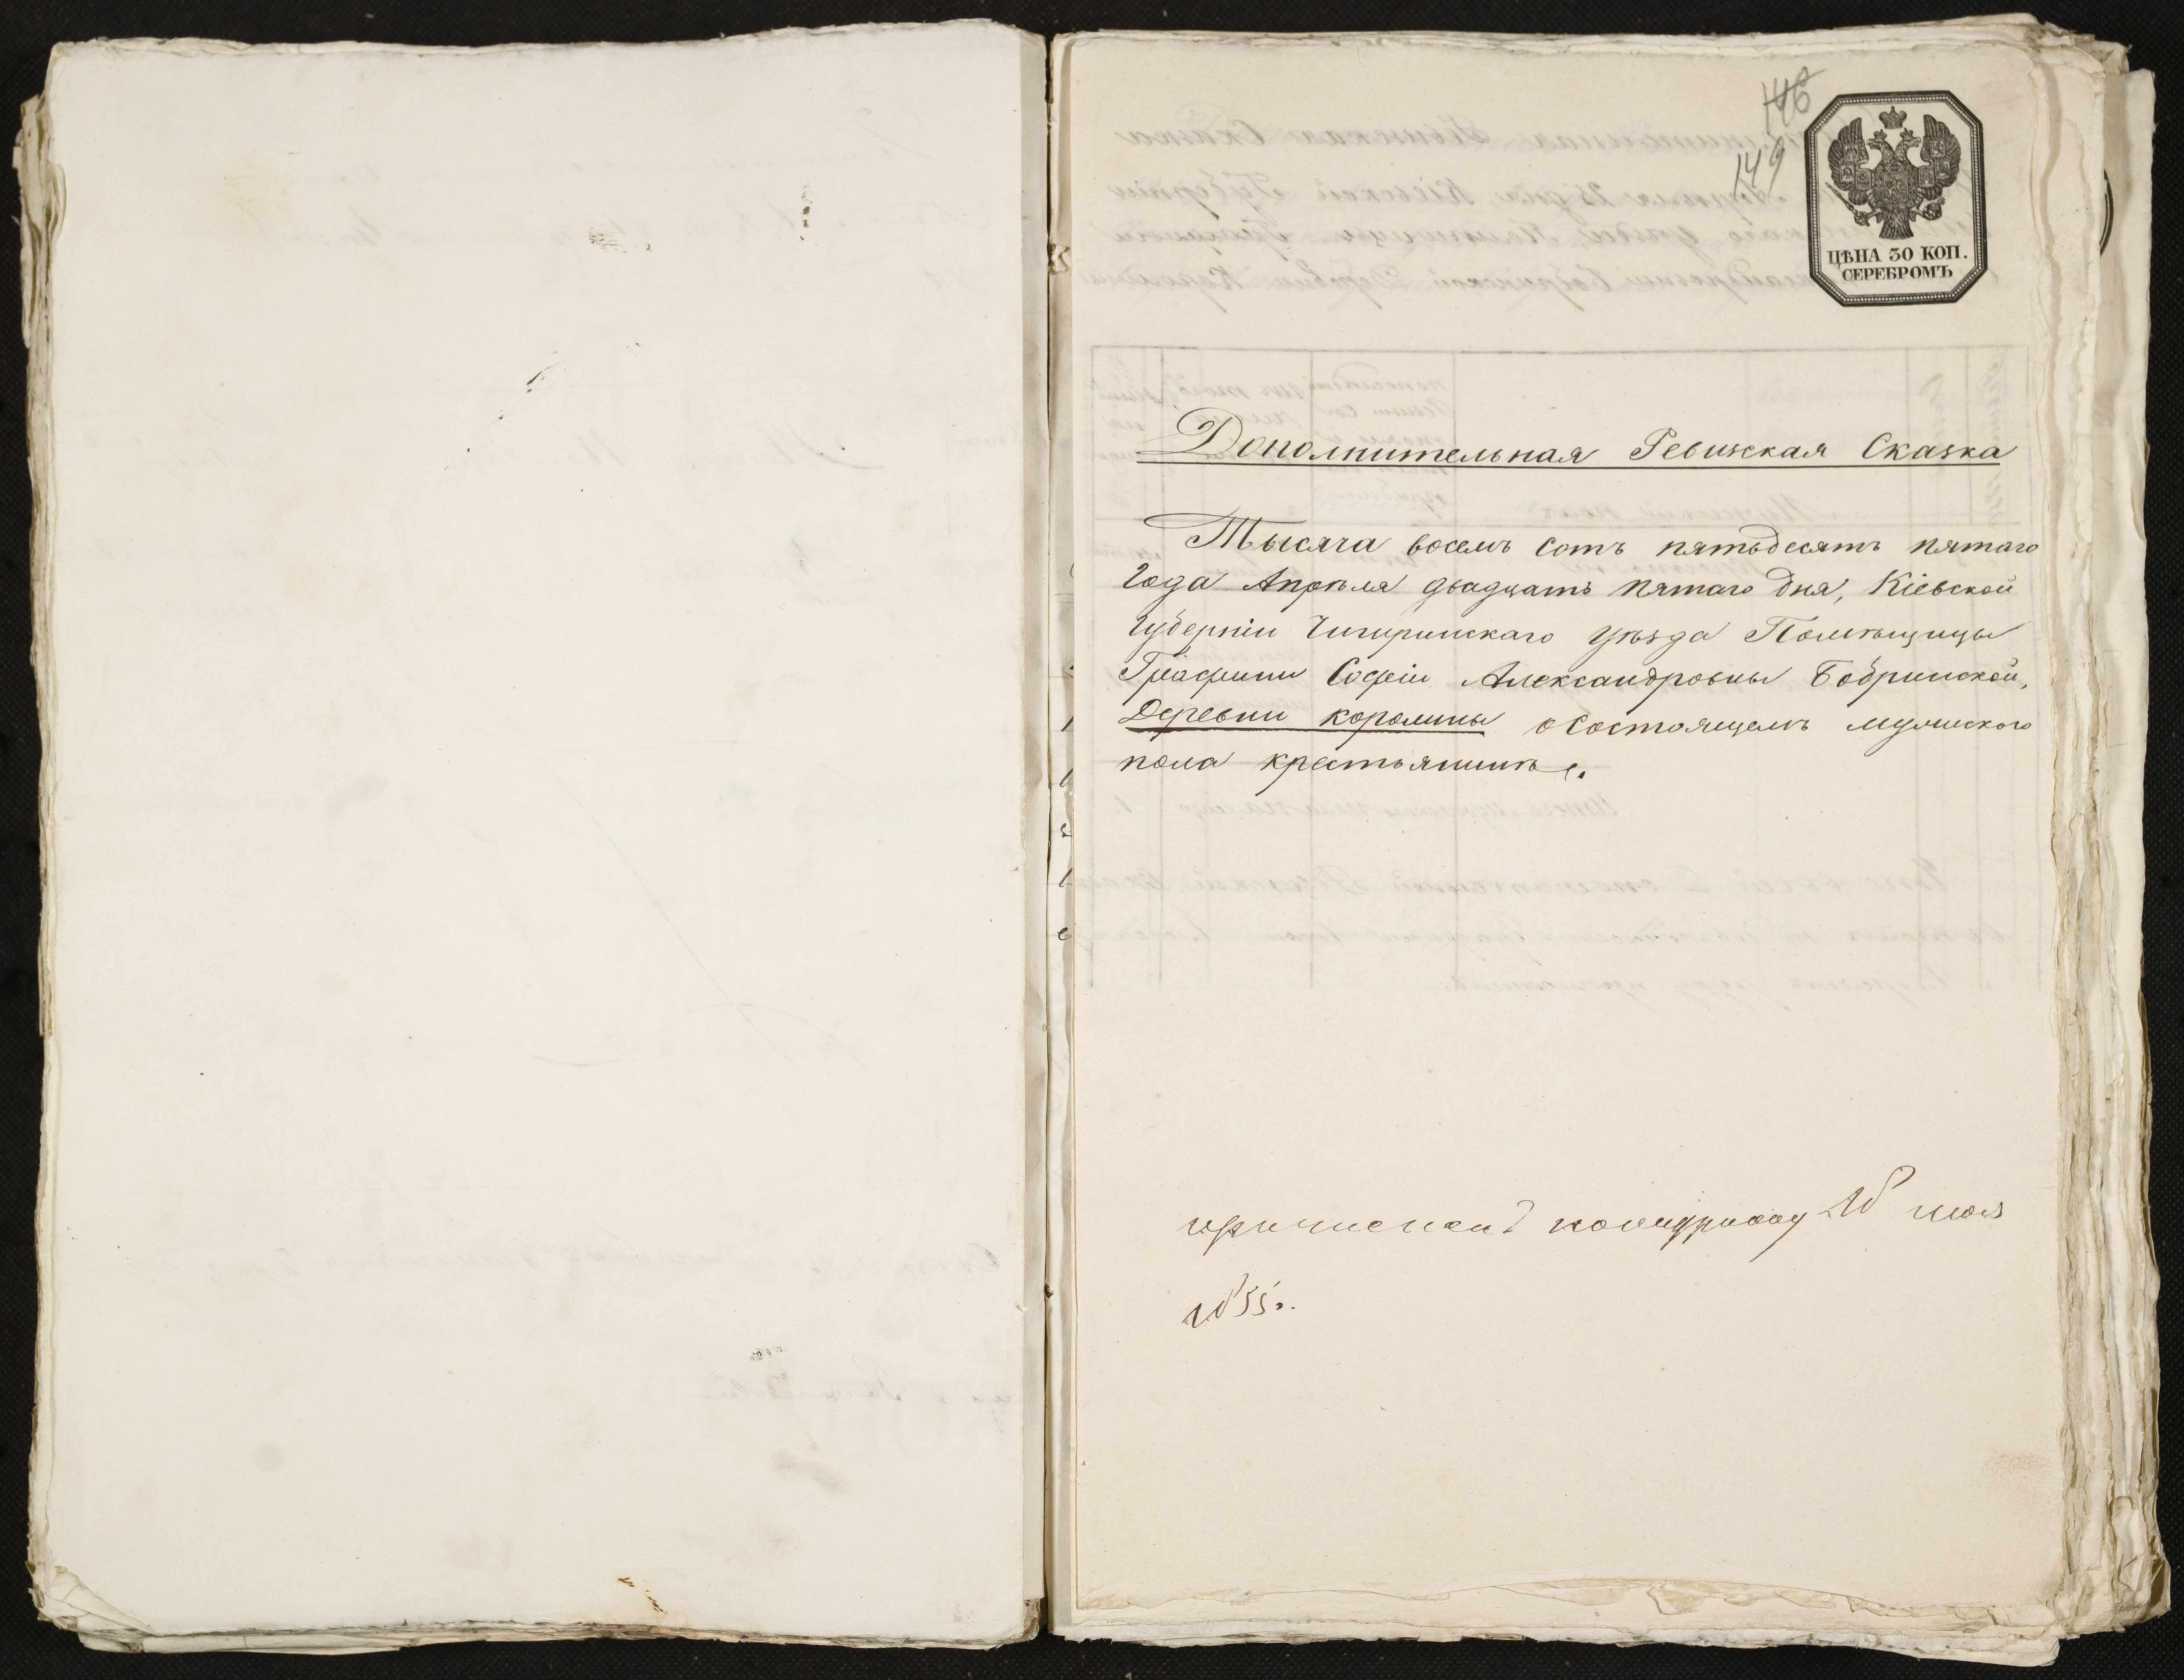 146
149
ЦѢНА 30 КОП.
СЕРЕБРОМЪ
Дополнительная Ревизская Сказка
Тысяча восемъ сотъ пятьдесятъ пятаго
Года Апрѣля двадцать пятаго дня, Кіевской
Губерніи Чигиринскаго уѣзда Помѣщицы
Графини Софіи Александровны Бобринской,
Деревни королины о состоящемъ мужскаго
пола крестьянинѣ.
1855г.